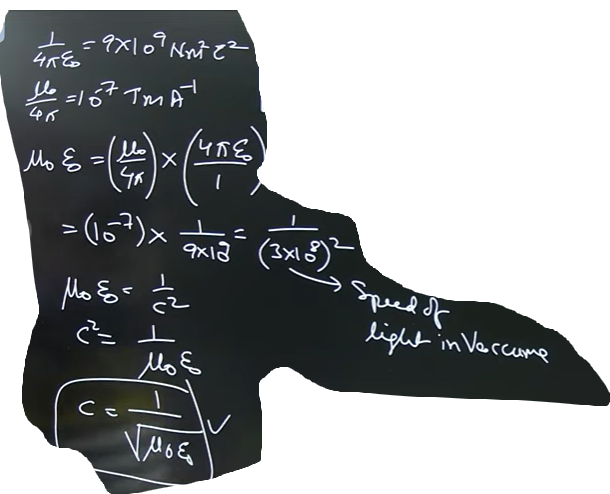 1/4πε₀ = 9×10⁹ Nm² C⁻²
μ₀/4π = 10⁻⁷ TmA⁻¹
μ₀ ε₀ = (μ₀/4π) × (4πε₀/1)
= (10⁻⁷) × 1/9×10⁹ = 1/(3×10⁸)²
μ₀ ε₀ = 1/c²
Speed of
light in Vaccume
c² = 1/μ₀ε₀
c = 1/√μ₀ε₀ ✓